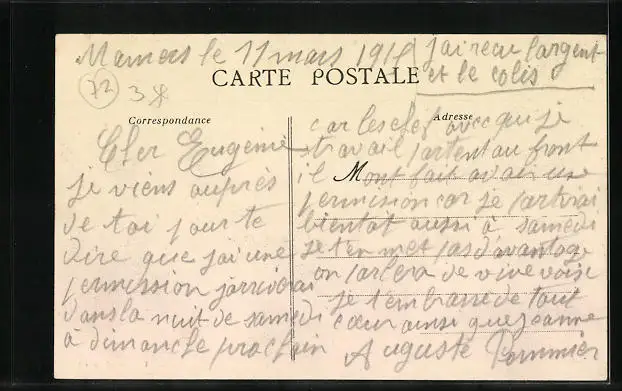 Mamers le 11 mars 191
jai recu l'argent
et le colis
CARTE POSTALE
72
3
Correspondance
Adresse
Cher Eugénie
je viens auprès
de toi pour te
dire que jai une
permission jarriverai
dans la nuit de samedi
à dimanche prochain
car les chef avec qui je
travail partent au front
il M'ont fait avoir une
permission car je partirai
bientot aussi à samedi
je ten met pas davantage
on parlera de vive voise
je t'embrasse de tout
cœur ainsi que jeanne
Auguste Pommier